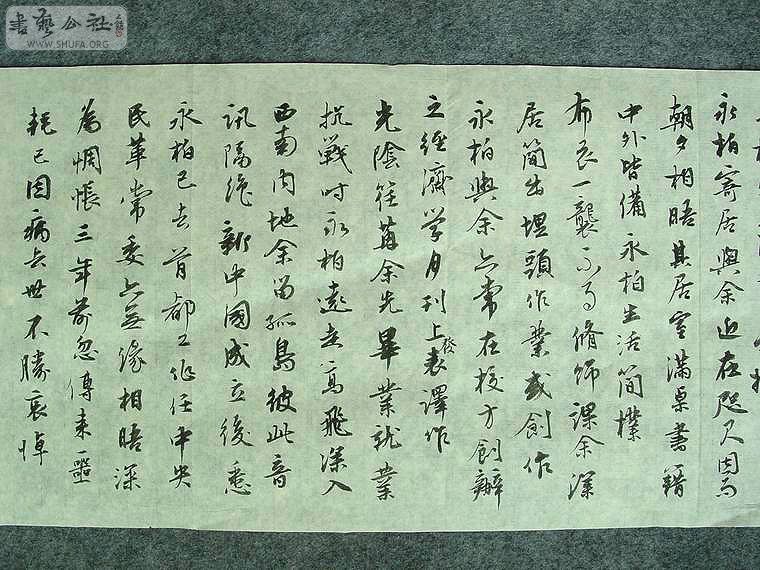 書藝公社
WWW.SHUFA.ORG
永柏寄居與余近在咫尺因而
朝夕相晤其居室滿桌書籍
中外皆備永柏生活簡樸
布衣一襲不事脩飾課余深
居簡出埋頭作業或創作
永柏與余亦常在校方創辦
之經濟學月刊上發表譯作
光陰荏苒余先畢業就業
抗戰時永柏遠走高飛深入
西南內地余留孤島彼此音
訊隔絶新中國成立後悉
永柏已去首都工作任中央
民革常委亦無緣相晤深
為惆悵三年前忽傳來噩
耗已因病去世不勝哀悼